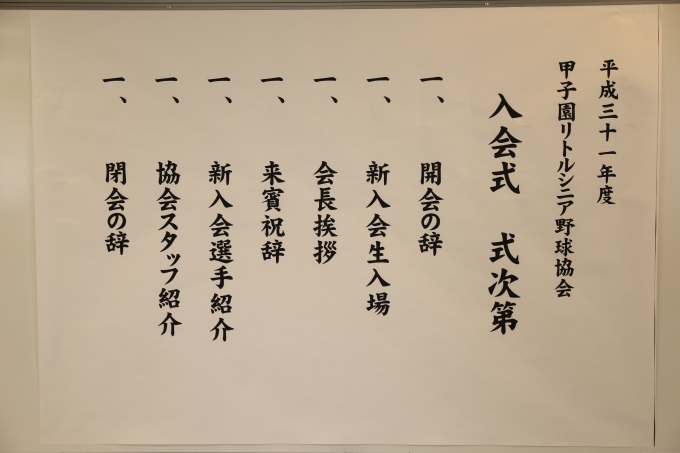 平成三十一年度
甲子園リトルシニア野球協会
入会式　式次第
一、　開会の辞
一、　新入会生入場
一、　会長挨拶
一、　来賓祝辞
一、　新入会選手紹介
一、　協会スタッフ紹介
一、　閉会の辞